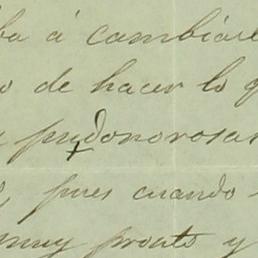 ba á cambiar
o de hacer lo q
pudonorosas
, pues cuando
muy pronto y